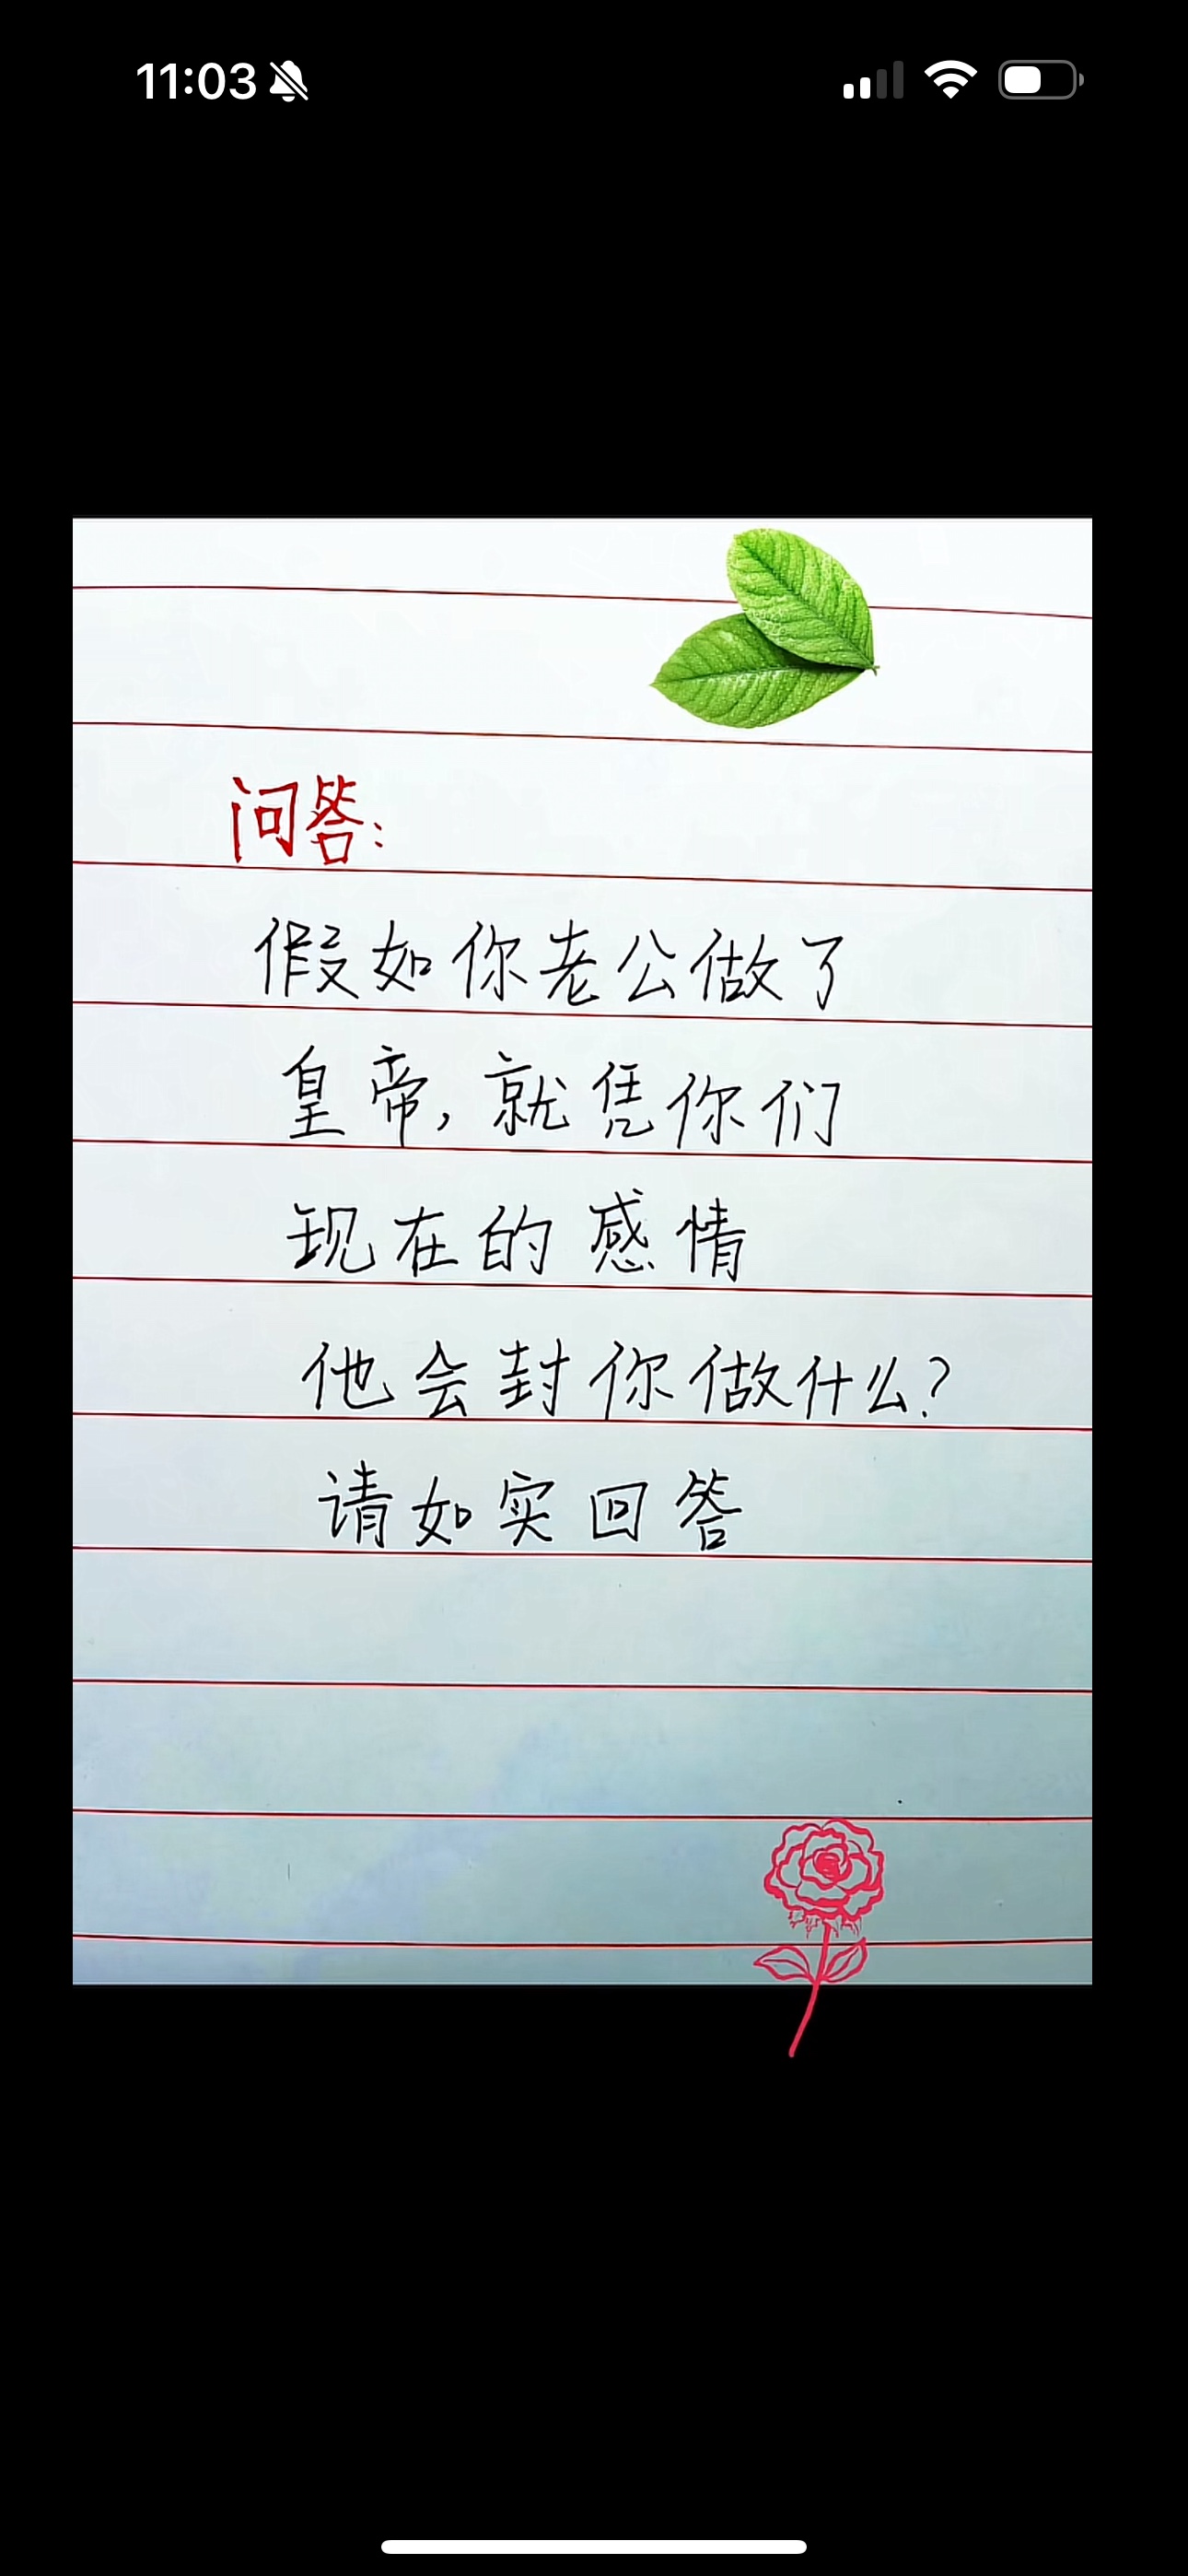 11:03
问答:
假如你老公做了
皇帝,就凭你们
现在的感情
他会封你做什么?
请如实回答